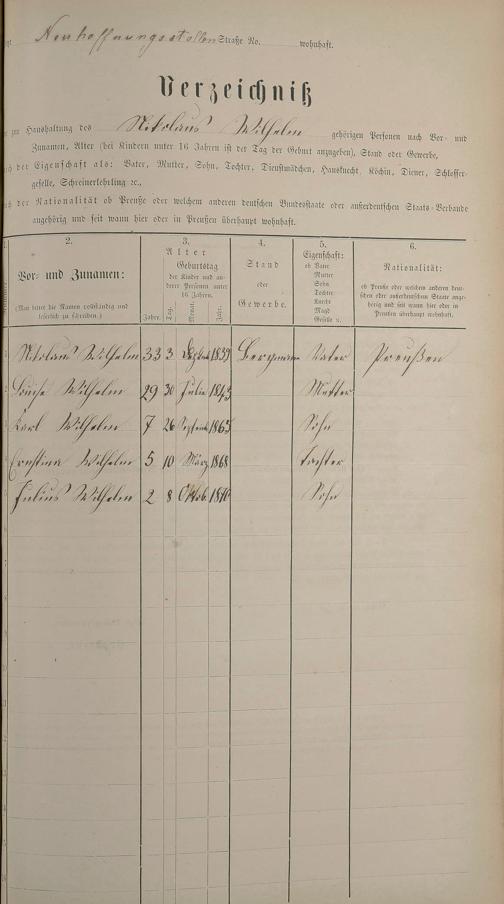 Neuhoffnungsstollen Straße No. wohnhaft.
Verzeichniß
zur Haushaltung des Nikolaus Wilhelm gehörigen Personen nach Vor- und
Zunamen, Alter (bei Kindern unter 16 Jahren ist der Tag der Geburt anzugeben), Stand oder Gewerbe,
der Eigenschaft als: Vater, Mutter, Sohn, Tochter, Dienstmädchen, Hausknecht, Köchin, Diener, Schlosser-
geselle, Schreinerlehrling ꝛc.,
der Nationalität ob Preuße oder welchem anderen deutschen Bundesstaate oder außerdeutschen Staats-Verbande
angehörig und seit wann hier oder in Preußen überhaupt wohnhaft.
2. 3. 4. 5. 6.
Vor- und Zunamen:
(Man bittet die Namen vollständig und
leserlich zu schreiben.)
Alter
Geburtstag
der Kinder und an-
derer Personen unter
16 Jahren.
Jahre. Tag. Monat. Jahr.
Stand
oder
Gewerbe.
Eigenschaft:
ob Vater
Mutter
Sohn
Tochter
Knecht
Magd
Geselle ꝛc.
Nationalität:
ob Preuße oder welchen anderen deut-
schen oder außerdeutschen Staate ange-
hörig und seit wann hier oder in
Preußen überhaupt wohnhaft.
Nikolaus Wilhelm 33 3 1839 Bergmann Vater Preußen
Louise Wilhelm 29 30 Julie 1843 Mutter
Karl Wilhelm 7 26 Septemb 1865 Sohn
Ernstina Wilhelm 5 10 März 1868 Tochter
Julius Wilhelm 2 8 Oktob. 1870 Sohn